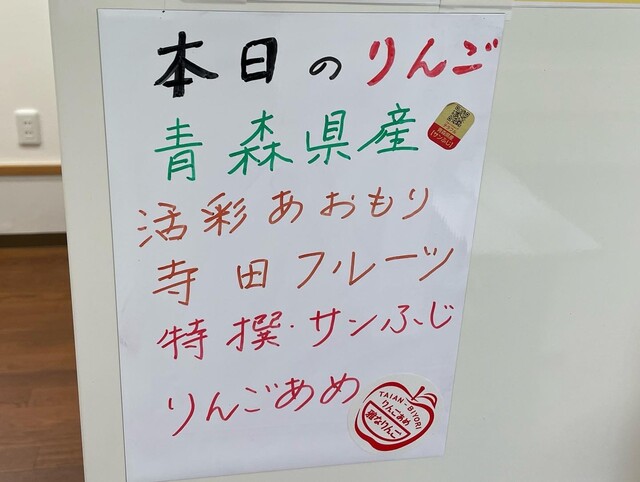 本日のりんご
青森県産
サンふじ
活彩あおもり
寺田フルーツ
特撰・サンふじ
りんごあめ
TAIAN-BIYORI
りんごあめ
雅なりんご